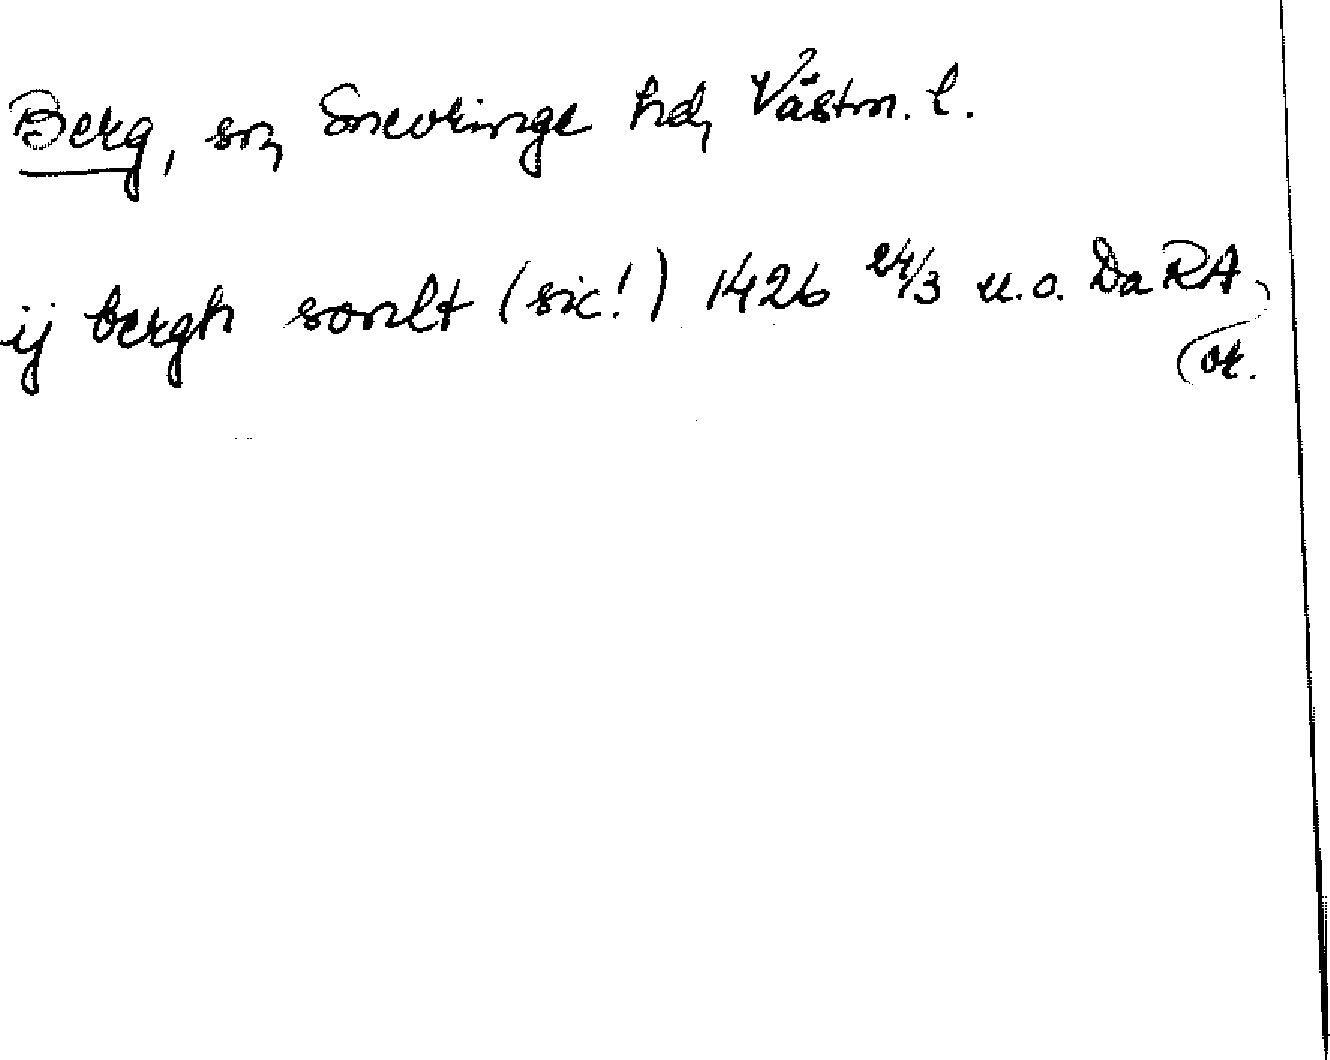 Berg, sn, Snevringe hd, Västm. l.
ij bergh sonlt (sic!) 1426 24/3 u.o. Da RA,
(or.